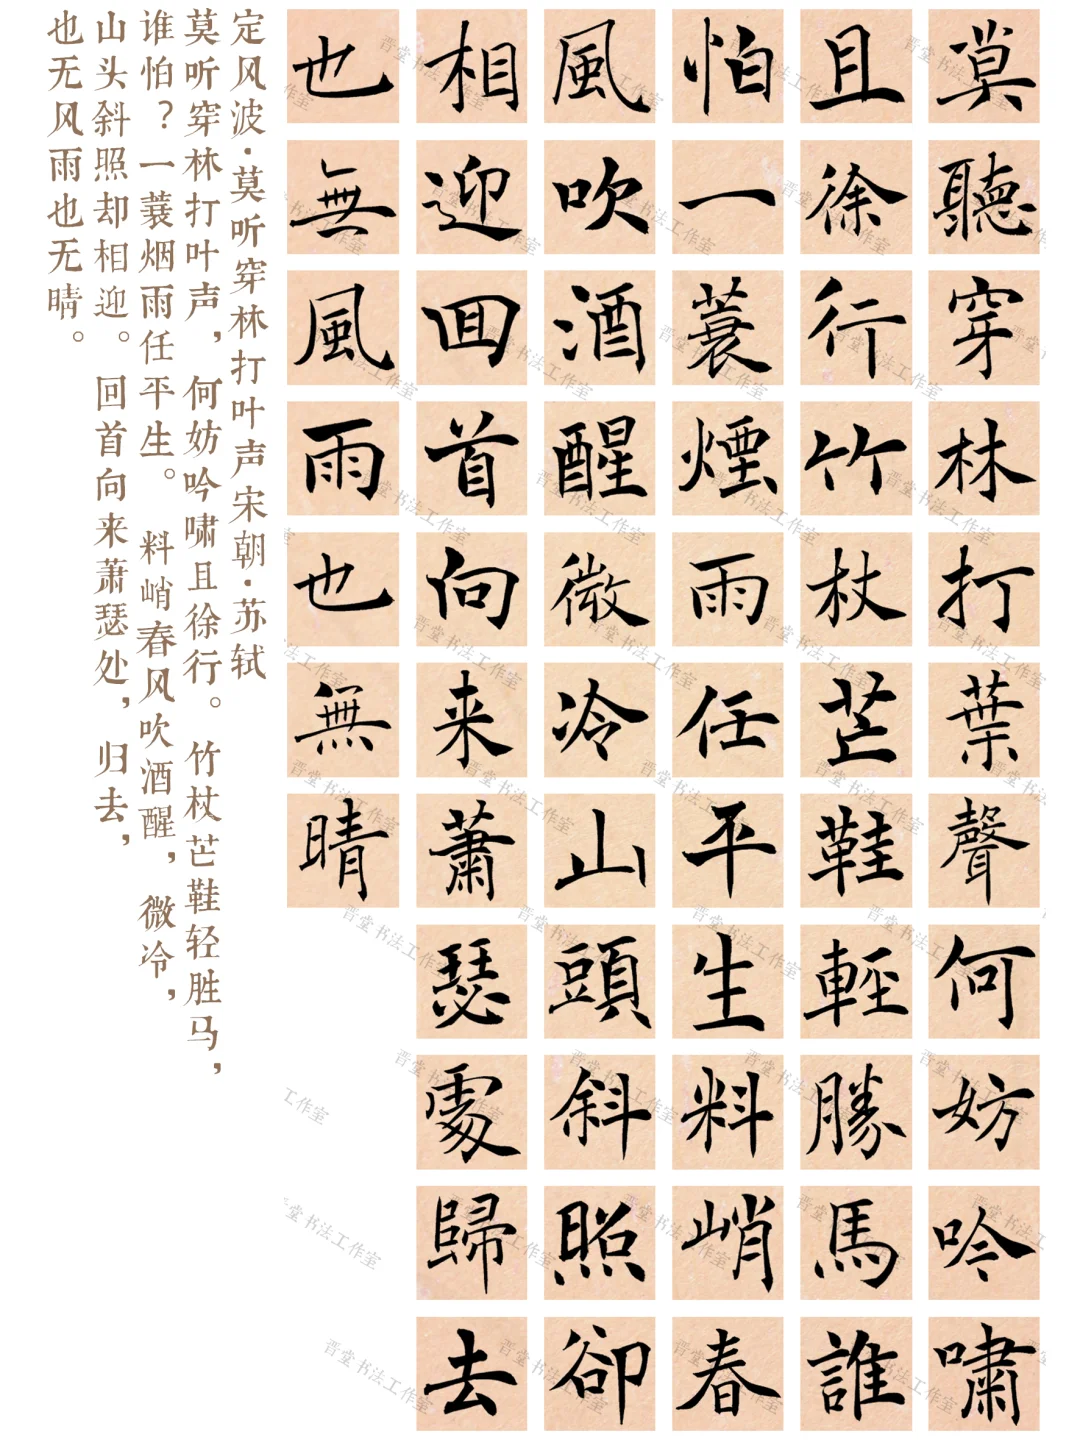 莫聽穿林打葉聲何妨吟嘯
且徐行竹杖芒鞋輕勝馬誰
怕一蓑煙雨任平生料峭春
風吹酒醒微冷山頭斜照卻
相迎回首向来蕭瑟處歸去
也無風雨也無晴
定风波·莫听穿林打叶声宋朝·苏轼
莫听穿林打叶声，何妨吟啸且徐行。竹杖芒鞋轻胜马，
谁怕？一蓑烟雨任平生。料峭春风吹酒醒，微冷，
山头斜照却相迎。回首向来萧瑟处，归去，
也无风雨也无晴。
晋堂书法工作室